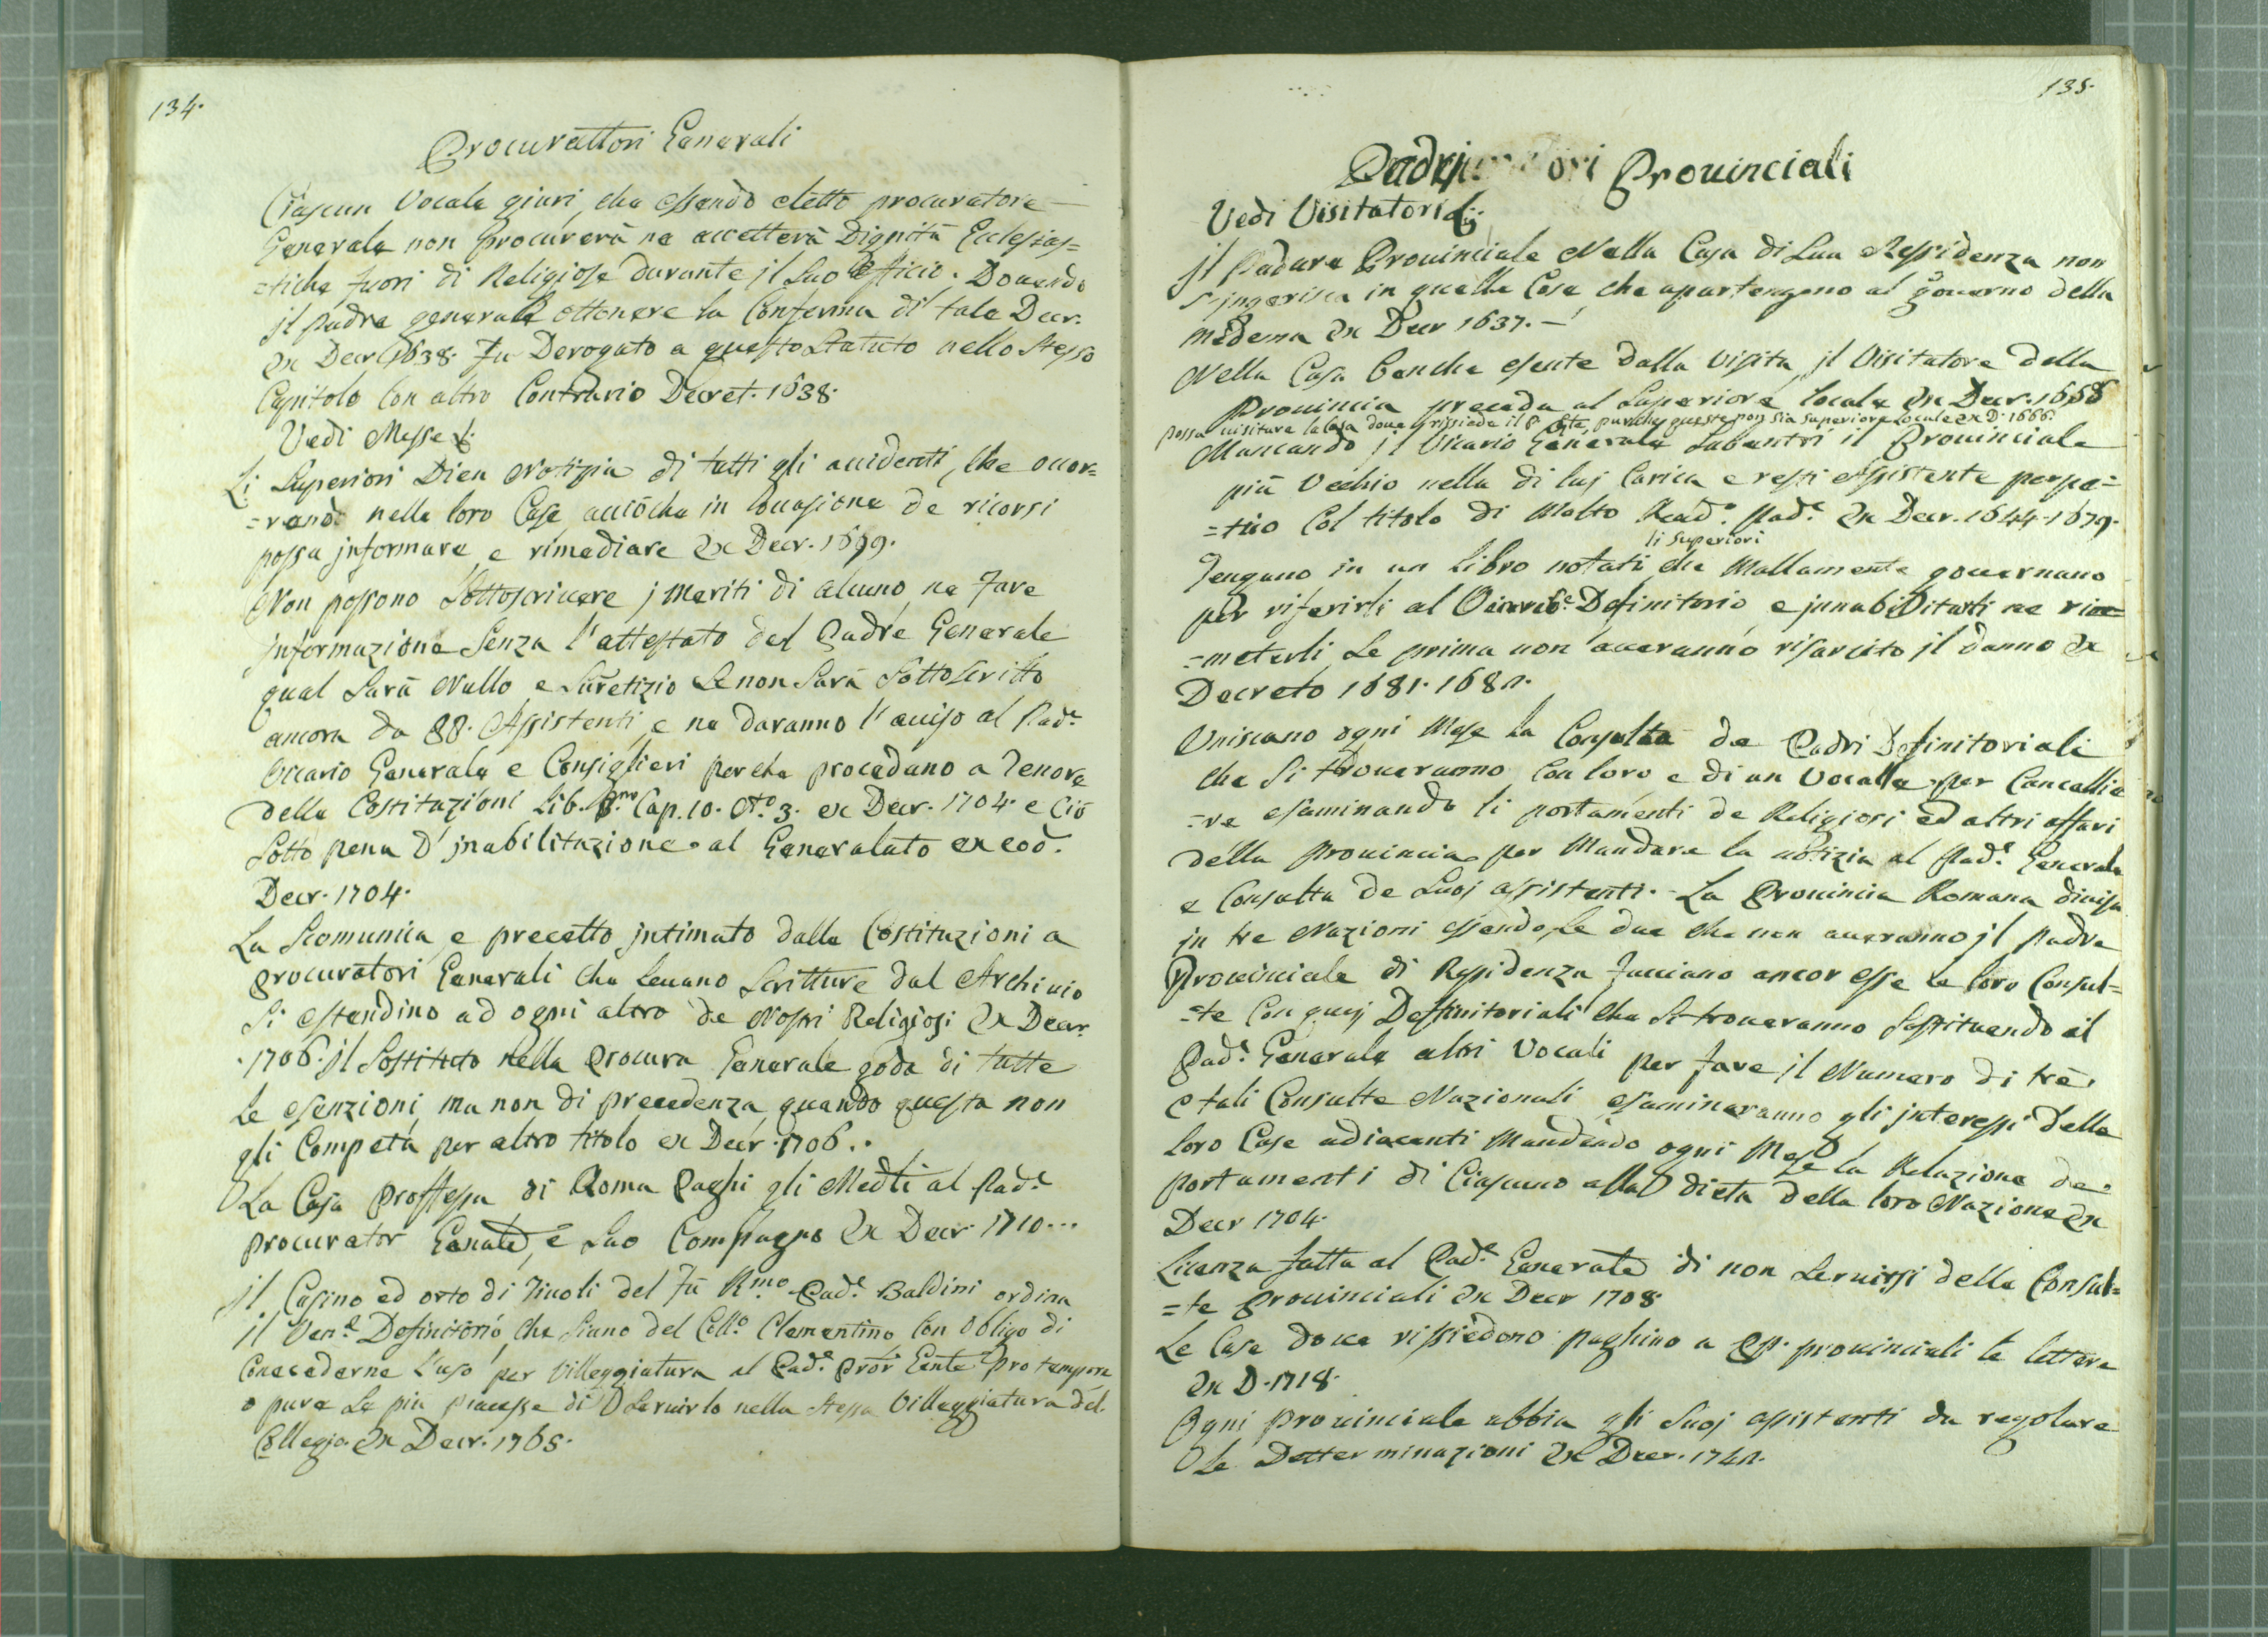 134.
Procurattori Generali
Ciascun Vocale giuri, che essendo eletto procuratore
Generale non procurerà ne accetterà Dignità Eclesias=
=tiche fuori di Religiose durante jl suo Officio. Douendo
jl padre generale ottenere la Conferma di tale Decr.
Ex Decr 1638. Fu Derogato a questo Statuto nello stesso
Capitolo con altro Contrario Decret. 1638.
Vedi Messe
Li Superiori Dien Notizia di tutti gli accidenti, che ocor=
=rono nelle loro Case acciòche in occasione de ricorsi
possa jnformare e rimediare Ex Decr. 1699.
Non possono Sottoscriuere j meriti di alcuno ne fare
jnformazione senza l'attestato del Padre Generale
qual sarà Nullo e suretizio se non sarà sottoscritto
ancora da PP. Assistenti e ne daranno l'auiso al Pad.e
Vicario Generale e Consiglieri perche procedano a tenore
delle Costituzioni Lib. P.mo Cap. 10. No. 3. ex Decr. 1704. e Ciò
sotto pena D'jnabilitazione al Generalato ex eod.
Decr. 1704.
La Scomunica e precetto jntimato dalle Costituzioni a
procuratori Generali che leuano scritture dal Archiuio
si estendino ad ogni altro de Nostri Religiosi Ex Decr.
1706. jl Sostituto nella Procura Generale goda di tutte
le esenzioni ma non di precedenza quando questa non
gli Competa per altro titolo ex Decr. 1706.
La Casa proffessa di Roma Paghi gli Medti al Pad.e
procurator Genale, e suo Compagno Ex Decr. 1710...
jl Casino ed orto di Tiuoli del Fù R.mo Pad.e Baldini ordina
il Ven.e Definitorio che siano del Coll.o Clementino con obligo di
Concederne l'uso per Villeggiatura al Pad.e Pror Genle pro tempore
o pure se più piacesse di seruirlo nella stessa Villeggiatura del
Collegio Ex Decr. 1765.
135.
Padri Prouinciali
Vedi Visitatori
jl Padare Prouinciale Nella Casa di sua Ressidenza non
s'jngerisca in quelle Cose che apartengono al gouerno della
medema Ex Decr 1637.
Nella Casa benche esente dalla Visita jl Visitatore della
Prouincia preceda al Superiore locale Ex Decr. 1668
possa uisitare la Casa doue rissiede il P. Gnle, purche questo non sia superiore locale ex D. 1666.
Mancando jl Vicario Generale subentri il Prouinciale
più Vechio nella di luj Carica e resti Assistente perpe=
=tuo Col titolo di Molto Reud.o Pad.e Ex Decr. 1644. 1679.
li Superiori
Tengano in un Libro notati che Mallamente gouernano
per riferirli al Definitorio e jnnabilitarli ne rim=
=meterli se prima non aueranno risarcito jl danno Ex
Decreto 1681. 1682.
Uniscano ogni Mese la Consulta de Padri Definitoriali
che si troueranno con loro e di un Vocalle per Cancellie
=re esaminando li portamenti de Religiosi ed altri affari
della Prouincia per Mandare la notizia al Pad.e Generale
e Consulta de suoj assistenti. La Prouincia Romana diuisa
jn tre Nazioni essendo, le due che non aueranno jl Padre
Prouinciale di Residenza facciano ancor esse le loro Consul=
=te con quej Deffinitoriali che si troueranno sostituendo il
Pad.e Generale altri Vocali per fare jl Numero di trè.
e tali Consulte Nazionali esamineranno gli jnteressi delle
loro Case adiacenti Mandando ogni Mese la Relazione de
portamenti di Ciascuno alla dieta della loro Nazione Ex
Decr 1704.
Licenza fatta al Pad.e Generale di non seruirsi delle Consul=
=te Prouinciali Ex Decr 1708.
Le Case doue rissiedono paghino a PP. prouinciali le lettere
Ex D. 1718.
Ogni prouinciale abbia gli suoj assistenti da regolare
le Detterminazioni Ex Decr. 1742.